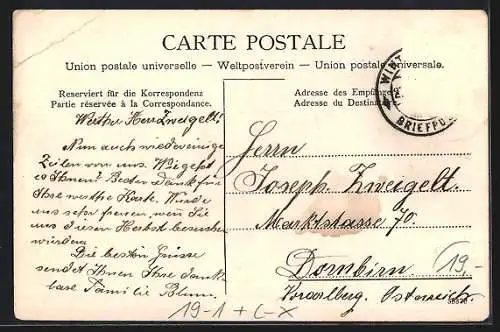 CARTE POSTALE
Union postale universelle — Weltpostverein — Union postale universale.
Reserviert für die Korrespondenz
Partie réservée à la Correspondance.
Adresse des Empfäng
Adresse du Destinat
WINT
BRIEFPO
Werther Herr Zweigelt!
Nun auch wieder einige
Zeilen von uns. Wie geht
es Ihnen? Besten Dank für
Ihre werthe Karte. Würde
uns sehr freuen, wen Sie
uns diesen Herbst besuchen
würden.
Die besten Grüsse
sendet Ihnen Ihre dank-
bare Familie Blum.
Herrn
Joseph Zweigelt.
Marktstrasse 70.
Dornbirn
Vorarlberg. Österreich.
19.-
19-1 + L-X